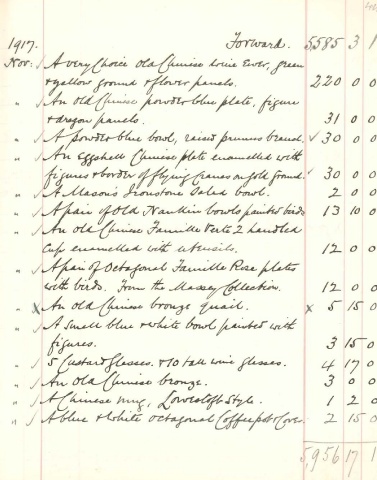 1917. Forward. 5,585 3 1
Nov: A very Choice old Chinese wine Ewer, green
& yellow ground & flower panels. 220 0 0
" An old Chinese powder blue plate, figure
& dragon panels. 31 0 0
" A powder blue bowl, raised prunus branch. 30 0 0
" An Eggshell Chinese plate enamelled with
figures & border of flying cranes on gold ground. 30 0 0
" A Mason's Ironstone Salad bowl. 2 0 0
" A pair of Old Nankin bowls painted birds 13 10 0
" An old Chinese Famille Verte 2 handled
Cup enamelled with utensils. 12 0 0
" A pair of Octagonal Famille Rose plates
with birds. From the Massey Collection. 12 0 0
" x An old Chinese bronze quail. x 5 15 0
" A small blue & white bowl painted with
figures. 3 15 0
" 5 Custard Glasses. & 10 tall wine glasses. 4 17 0
" An old Chinese bronze. 3 0 0
" A Chinese mug, Lowestoft Style. 1 2 0
" A blue & white Octagonal Coffee pot & Cover 2 15 0
5,956 17 1